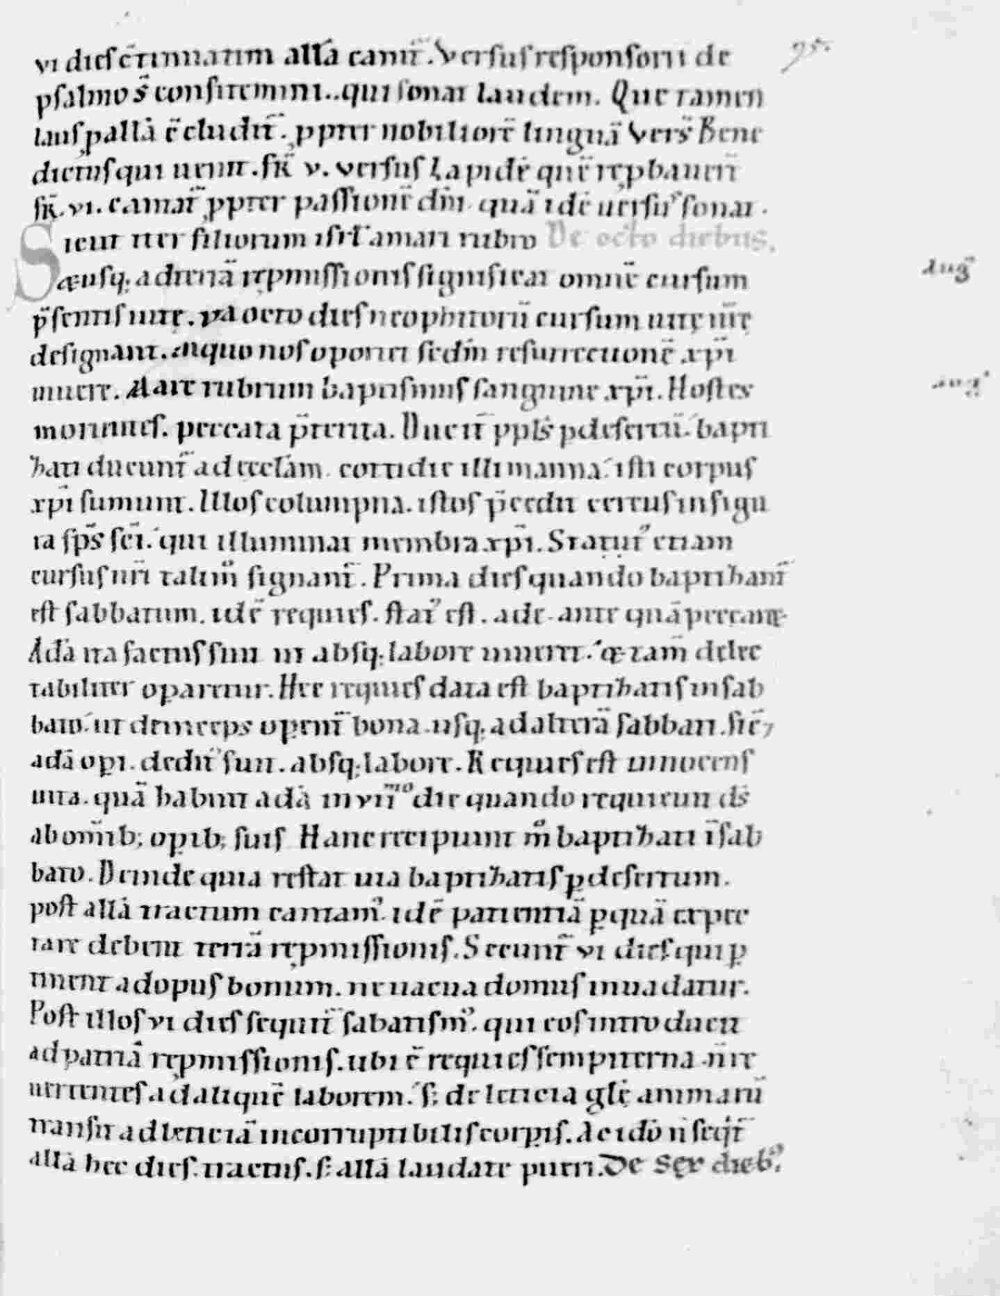 95.
vi dies c̄tinuatim all̄a canit̄. Versus responsorii de
psalmo s̄ confitemini.. qui sonat laudem. Que tamen
laus p allā c̄cludit̄. ꝓpter nobiliorē linguā Vers̄ Bene
dictus qui uenit. fr̄ v. versus Lapidē quē rep̱baueꝛ̄
fr̄. vi. cantat̄ ꝓpter passionē dn̄i quā idē uersus sonat.
Sicut iter filiorum isrl̄ a mari rubro De octo diebus.
æusq; ad terrā repmissionis significat omnē cursum Aug̃
p̄sentis uite. ita octo dies neophitorū cursum uite nr̄e
designant. in quo nos oportet secdm̄ resurrectionē xp̄i
uiuere. Mare rubrum baptismus sanguine xp̄i. Hostes Aug̃
morientes. peccata p̄terita. Ducit̄ ppls̄ p desertū. bapti
zati ducunt̄ ad ecclam̄. cottidie illi manna. isti corpus
xp̄i sumunt. Illos columpna. istos p̄cedit cereus in figu
ra sps̄ sci̅. qui illuminat membra xp̄i. Statuꝰ etiam
cursus nr̄i talit̄ signant̄. Prima dies quando baptizant̄
est sabbatum. idē requies. statꝰ est. ade. ante quā peccaret.
Adā ita factus fuit ut absq; labore uiueret. & tam̄ delec
tabiliter operaretur. Hec requies data est baptizatis in sab
bato. ut deinceps operent̄ bona. usq; ad alterā sabbati. sic̄
adā opi. deditꝰ fuit. absq; labore. Requies est innocens
uita. quā habuit adā in viiᵒ die quando requieuit ds̄
ab om̄ib; opib; suis Hanc recipiunt m̊ baptizati ī sab
bato. Deinde quia restat uia baptizatis p desertum.
post allā tractum cantam̄ꝰ. idē patientiā p quā expec
tare debent terrā repmissionis. Secunt̄ vi dies qui p
tinent ad opus bonum. ne uacua domus inuadatur.
Post illos vi dies sequit̄ sabatismꝰ. qui eos introducit
ad patriā repmissionis. ubi ē requies sempiterna. n̄ re
uertentes ad aliquē laborem. s; de leticia glē animarū
transit ad leticiā incorruptibilis corpis. Ac ido n̄ seqit̄
allā hec dies. tractus. s; allā laudate pueri. De sex diebꝰ.